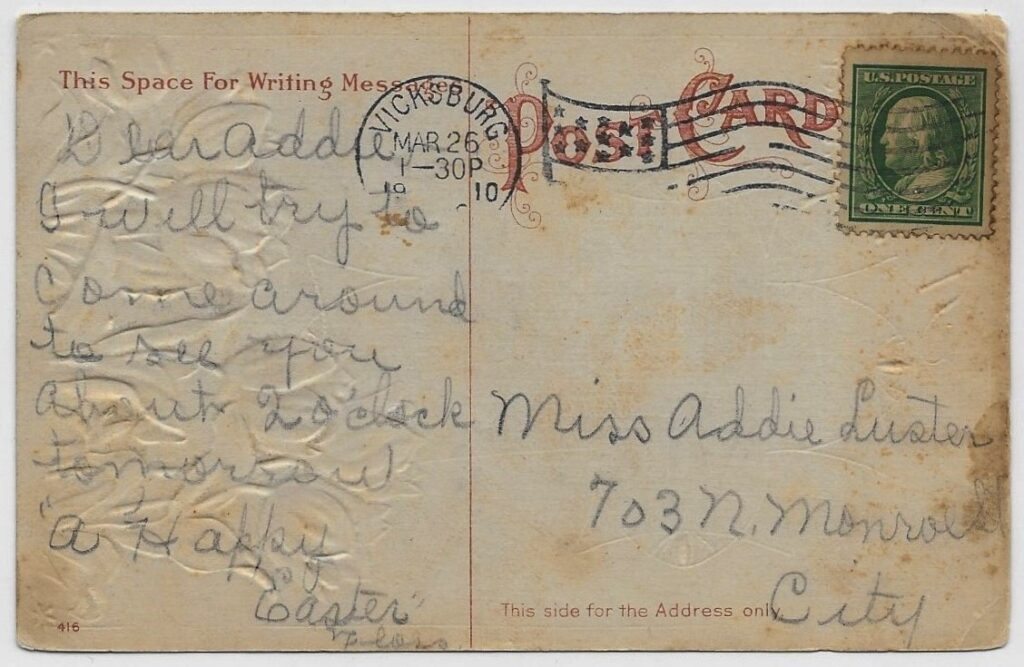 This Space For Writing Messages
POST CARD
VICKSBURG
MAR 26
1-30P
19 10
U.S. POSTAGE
ONE CENT
Dear Addie,
I will try to
Come around
to see you
about 2 o'clock
tomorrow
"A Happy
Easter"
Floss
Miss Addie Luster
703 N. Monroe St
City
This side for the Address only.
416